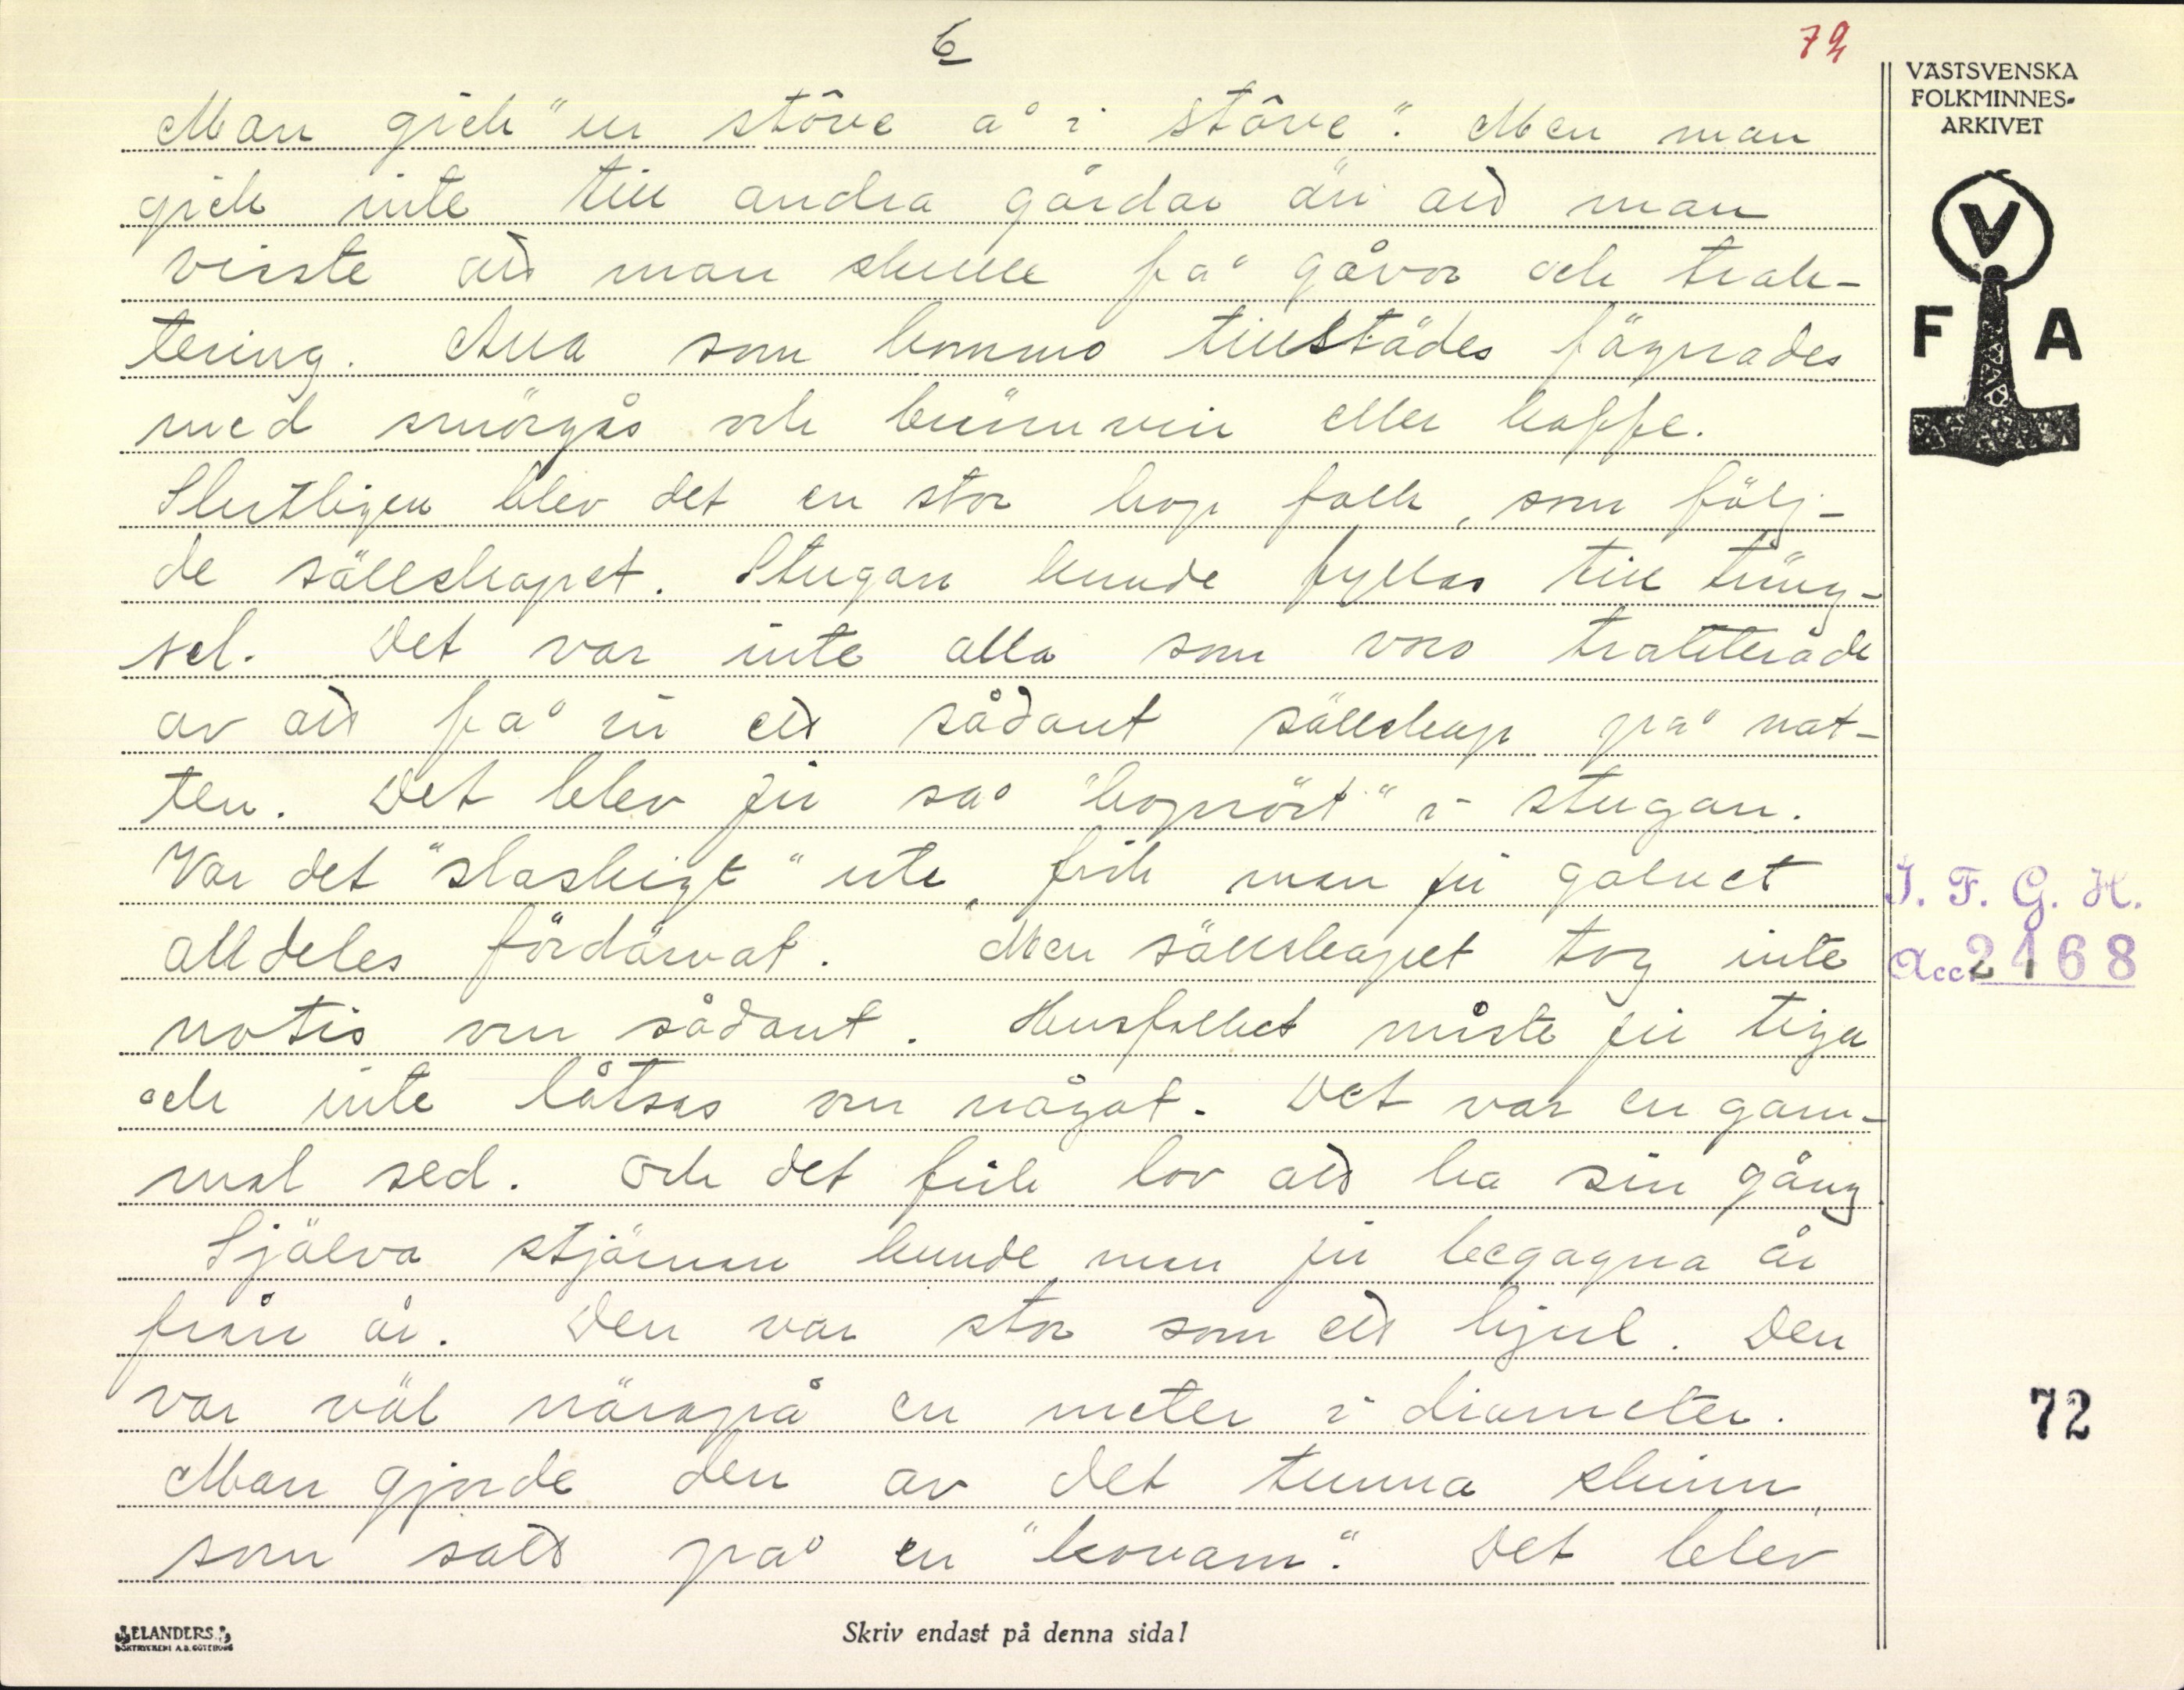 6
72
VÄSTSVENSKA
FOLKMINNES-
ARKIVET
Man gick "ur stôve å i stôve". Men man
gick inte till andra gårdar än att man
visste att man skulle få gåvor och trak-
tering. Alla som kommo tillstädes fägnades
med smörgås och brännvin eller kaffe.
Slutligen blev det en stor hop folk, som följ-
de sällskapet. Stugan kunde fyllas till träng-
sel. Det var inte alla som voro trakterade
av att få in ett sådant sällskap på nat-
ten. Det blev ju så "kopnört" i stugan.
Var det "slaskigt" ute, fick man ju golvet
alldeles fördärvat. Men sällskapet tog inte
notis om sådant. Husfolket måste ju tiga
och inte låtsas om något. Det var en gam-
mal sed. Och det fick lov att ha sin gång.
Själva stjärnan kunde man ju begagna år
från år. Den var stor som ett hjul. Den
var väl närapå en meter i diameter.
Man gjorde den av det tunna skinn,
som satt på en "kovam". Det blev
V
F A
I. F. G. H.
Acc. 2168
72
ELANDERS
BOKTRYCKERI A.B. GÖTEBORG
Skriv endast på denna sida!